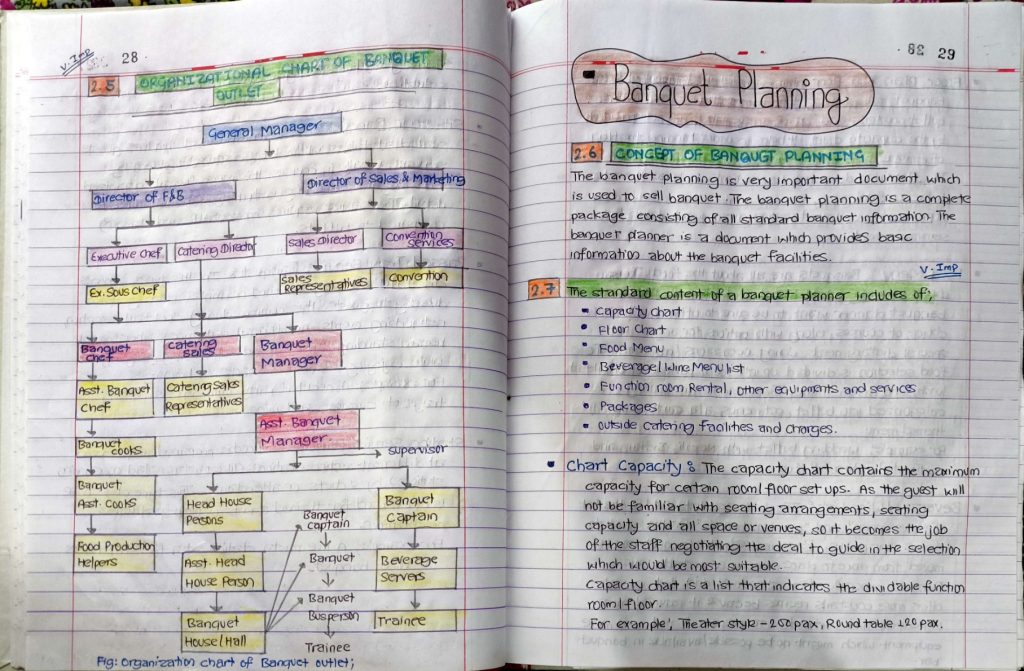 V. Imp
28
2.5 ORGANIZATIONAL CHART OF BANQUET
OUTLET
General Manager
Director of F&B
Director of Sales & Marketing
Executive Chef
Catering Director
Sales Director
Convention
Services
Ex. Sous Chef
Sales
Representatives
Convention
Banquet
Chef
Catering
Sales
Banquet
Manager
Asst. Banquet
Chef
Catering Sales
Representatives
Asst. Banquet
Manager
supervisor
Banquet
cooks
Banquet
Asst. Cooks
Head House
Persons
Banquet
captain
Banquet
Captain
Food Production
Helpers
Asst. Head
House Person
Banquet
Beverage
Servers
Banquet
House/Hall
Banquet
Busperson
Trainee
Trainee
Fig: Organization chart of Banquet outlet;
29
Banquet Planning
2.6 CONCEPT OF BANQUET PLANNING
The banquet planning is very important document which
is used to sell banquet. The banquet planning is a complete
package consisting of all standard banquet information. The
banquet planner is a document which provides basic
information about the banquet facilities.
V. Imp
2.7 The standard content of a banquet planner includes of;
• Capacity chart
• Floor Chart
• Food Menu
• Beverage/Wine Menu list
• Function room Rental, other equipments and services
• Packages
• Outside catering Facilities and charges.
• Chart Capacity : The capacity chart contains the maximum
capacity for certain room/floor set ups. As the guest will
not be familiar with seating arrangements, seating
capacity and all space or venues, so it becomes the job
of the staff negotiating the deal to guide in the selection
which would be most suitable.
Capacity chart is a list that indicates the dividable function
room/floor.
For example; Theater style - 200 pax, Round table 120 pax.